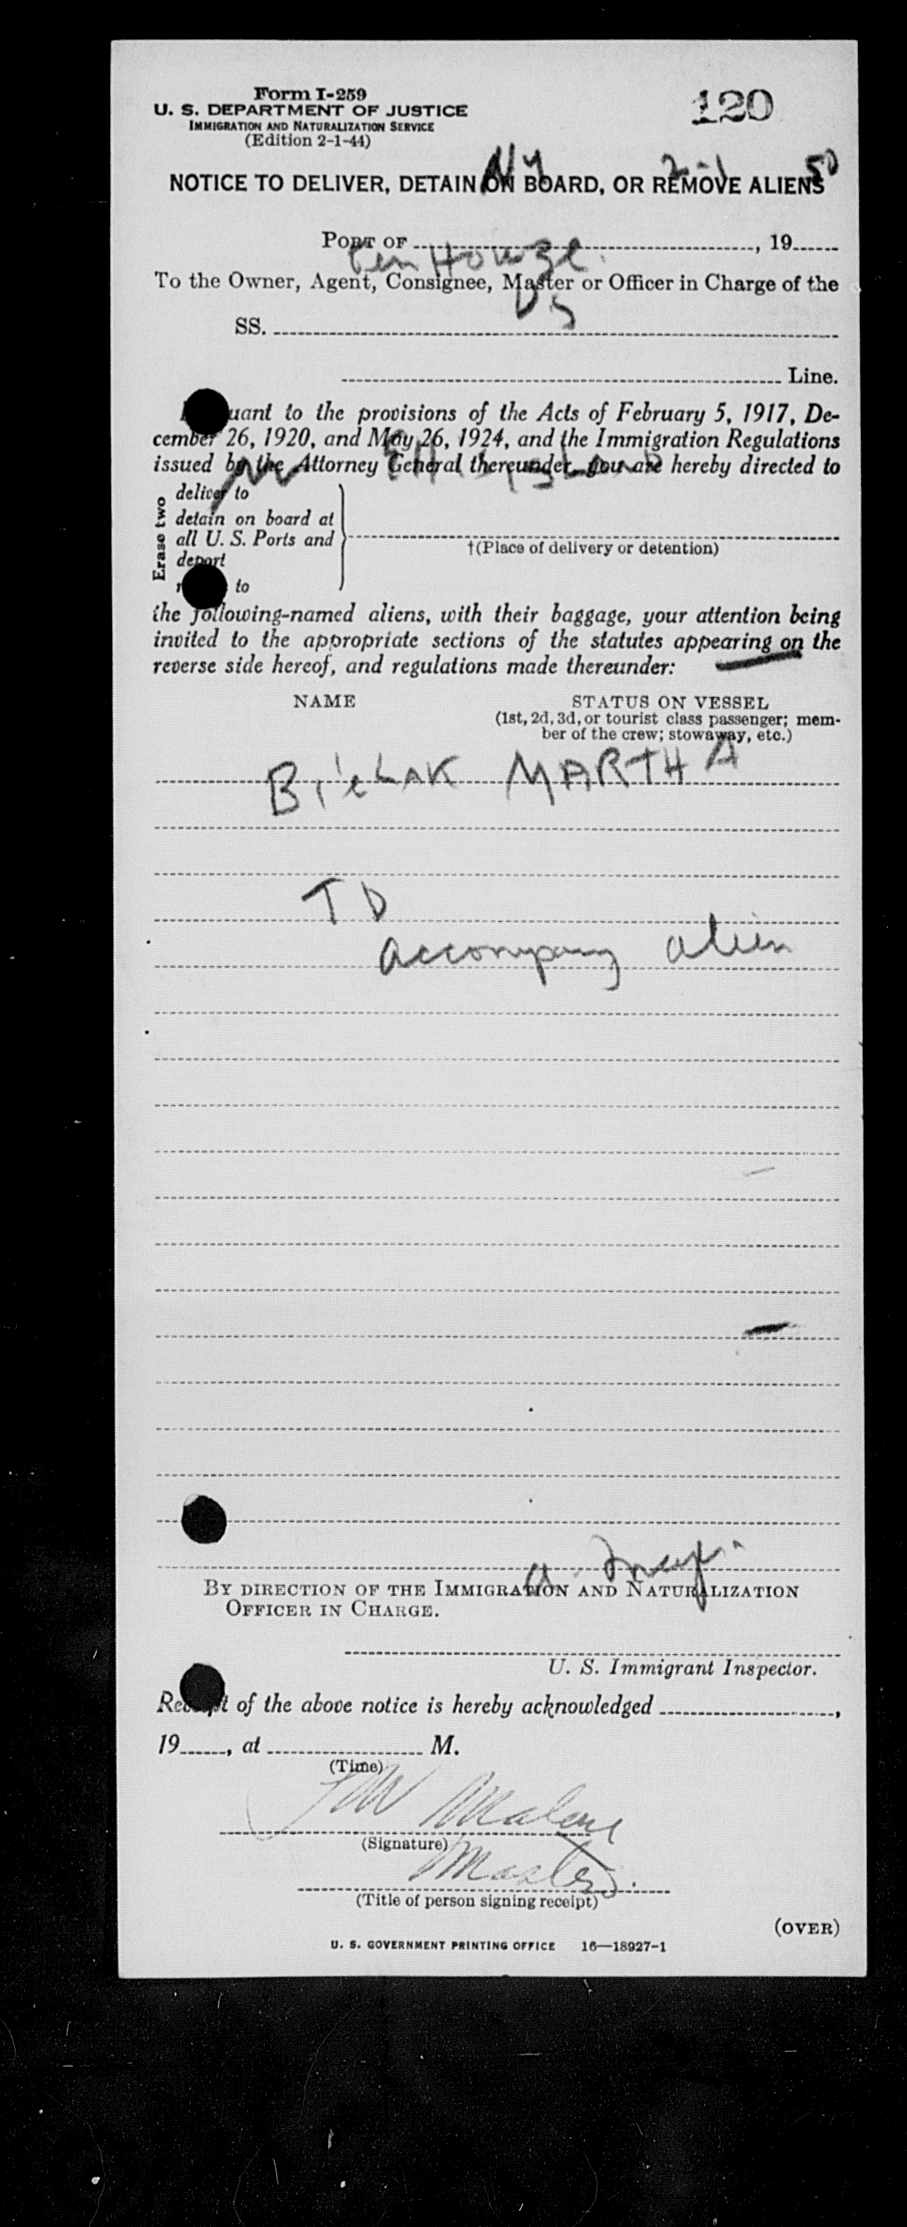 Form I-259
120
U. S. DEPARTMENT OF JUSTICE
IMMIGRATION AND NATURALIZATION SERVICE
(Edition 2-1-44)
NY 2-1 50
NOTICE TO DELIVER, DETAIN ON BOARD, OR REMOVE ALIENS
PORT OF , 19
Gen Howze
To the Owner, Agent, Consignee, Master or Officer in Charge of the
SS.
US
Line.
uant to the provisions of the Acts of February 5, 1917, De-
cember 26, 1920, and May 26, 1924, and the Immigration Regulations
issued by the Attorney General thereunder, you are hereby directed to
Erase two
deliver to
detain on board at
all U. S. Ports and
deport
to
†(Place of delivery or detention)
the following-named aliens, with their baggage, your attention being
invited to the appropriate sections of the statutes appearing on the
reverse side hereof, and regulations made thereunder:
NAME STATUS ON VESSEL
(1st, 2d, 3d, or tourist class passenger; mem-
ber of the crew; stowaway, etc.)
BieLAK MARTHA
TD
accompany alien
BY DIRECTION OF THE IMMIGRATION AND NATURALIZATION
OFFICER IN CHARGE.
U. S. Immigrant Inspector.
Receipt of the above notice is hereby acknowledged ,
19 , at M.
(Time)
Malone
(Signature)
Master.
(Title of person signing receipt)
(OVER)
U. S. GOVERNMENT PRINTING OFFICE 16—18927-1